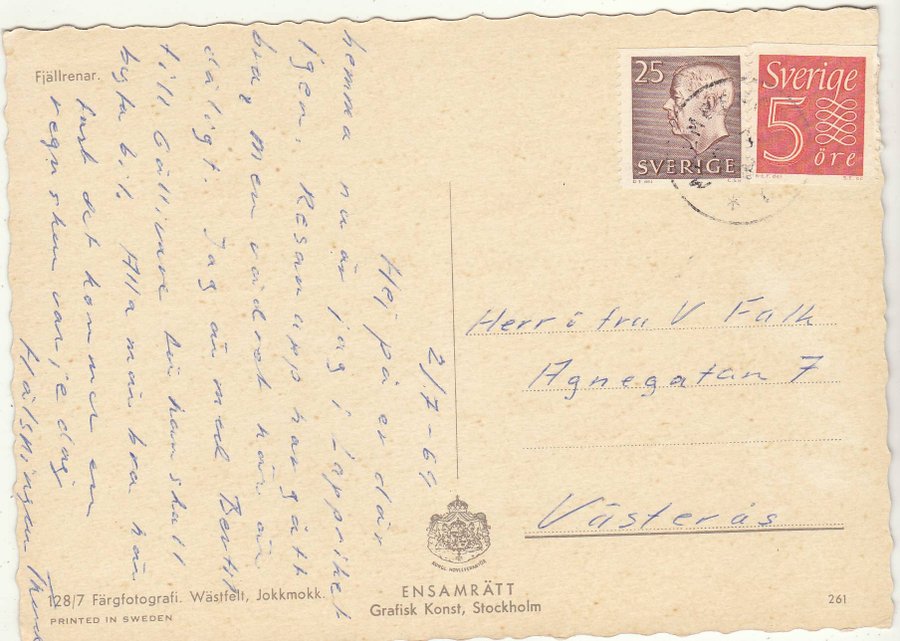 Fjällrenar.
2/7-69
Hej på er där
hemma nu är jag i Lappriket
igen. Resan upp har gått
bra, men vädret här är
dåligt. Jag är med Bertil
till Gällivare han skall
byta bil. Alla mår bra här
fast det kommer en
regnskur varje dag
Hälsningen
25
SVERIGE
Sverige
5
öre
Herr o fru V Falk
Agnegatan 7
Västerås
KUNGL. HOVLEVERANTÖR
128/7 Färgfotografi. Wästfelt, Jokkmokk.
PRINTED IN SWEDEN
ENSAMRÄTT
Grafisk Konst, Stockholm
261